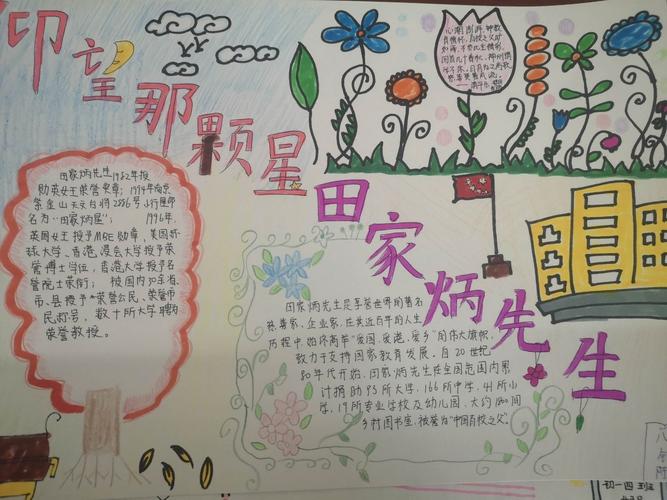 仰望那颗星
田家炳先生
田家炳先生1982年授
勋英女王荣誉奖章；1994年南京
紫金山天文台将2886号小行星命
名为"田家炳星"；1996年，
英国女王授予MBE勋章，美国环
球大学、香港浸会大学授予荣
誉博士学位，香港大学授予名
誉院士荣衔；被国内70余省、
市、县授予荣誉公民、荣誉市
民称号，数十所大学聘为
荣誉教授。
田家炳先生是享誉世界的著名
慈善家、企业家，在其近百年的人生
历程中始终高举"爱国、爱港、爱乡"的伟大旗帜，
致力于支持国家教育发展，自20世纪
80年代开始，田家炳先生在全国范围内累
计捐助93所大学，166所中学，41所小
学，19所专业学校及幼儿园，大约1800间
乡村图书室，被誉为"中国百校之父"。
初一四班